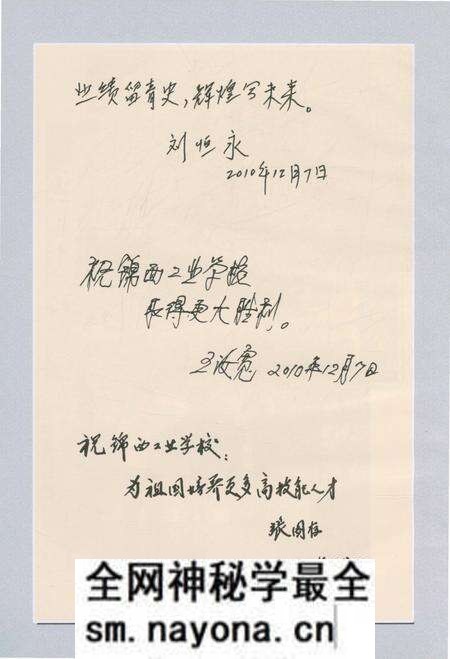 业绩留青史，辉煌写未来。
刘恒永
2010年12月7日
祝锦西工业学校
取得更大胜利。
王汝宽 2010年12月7日
祝锦西工业学校：
为祖国培养更多高技能人才
张国存
全网神秘学最全
sm.nayona.cn